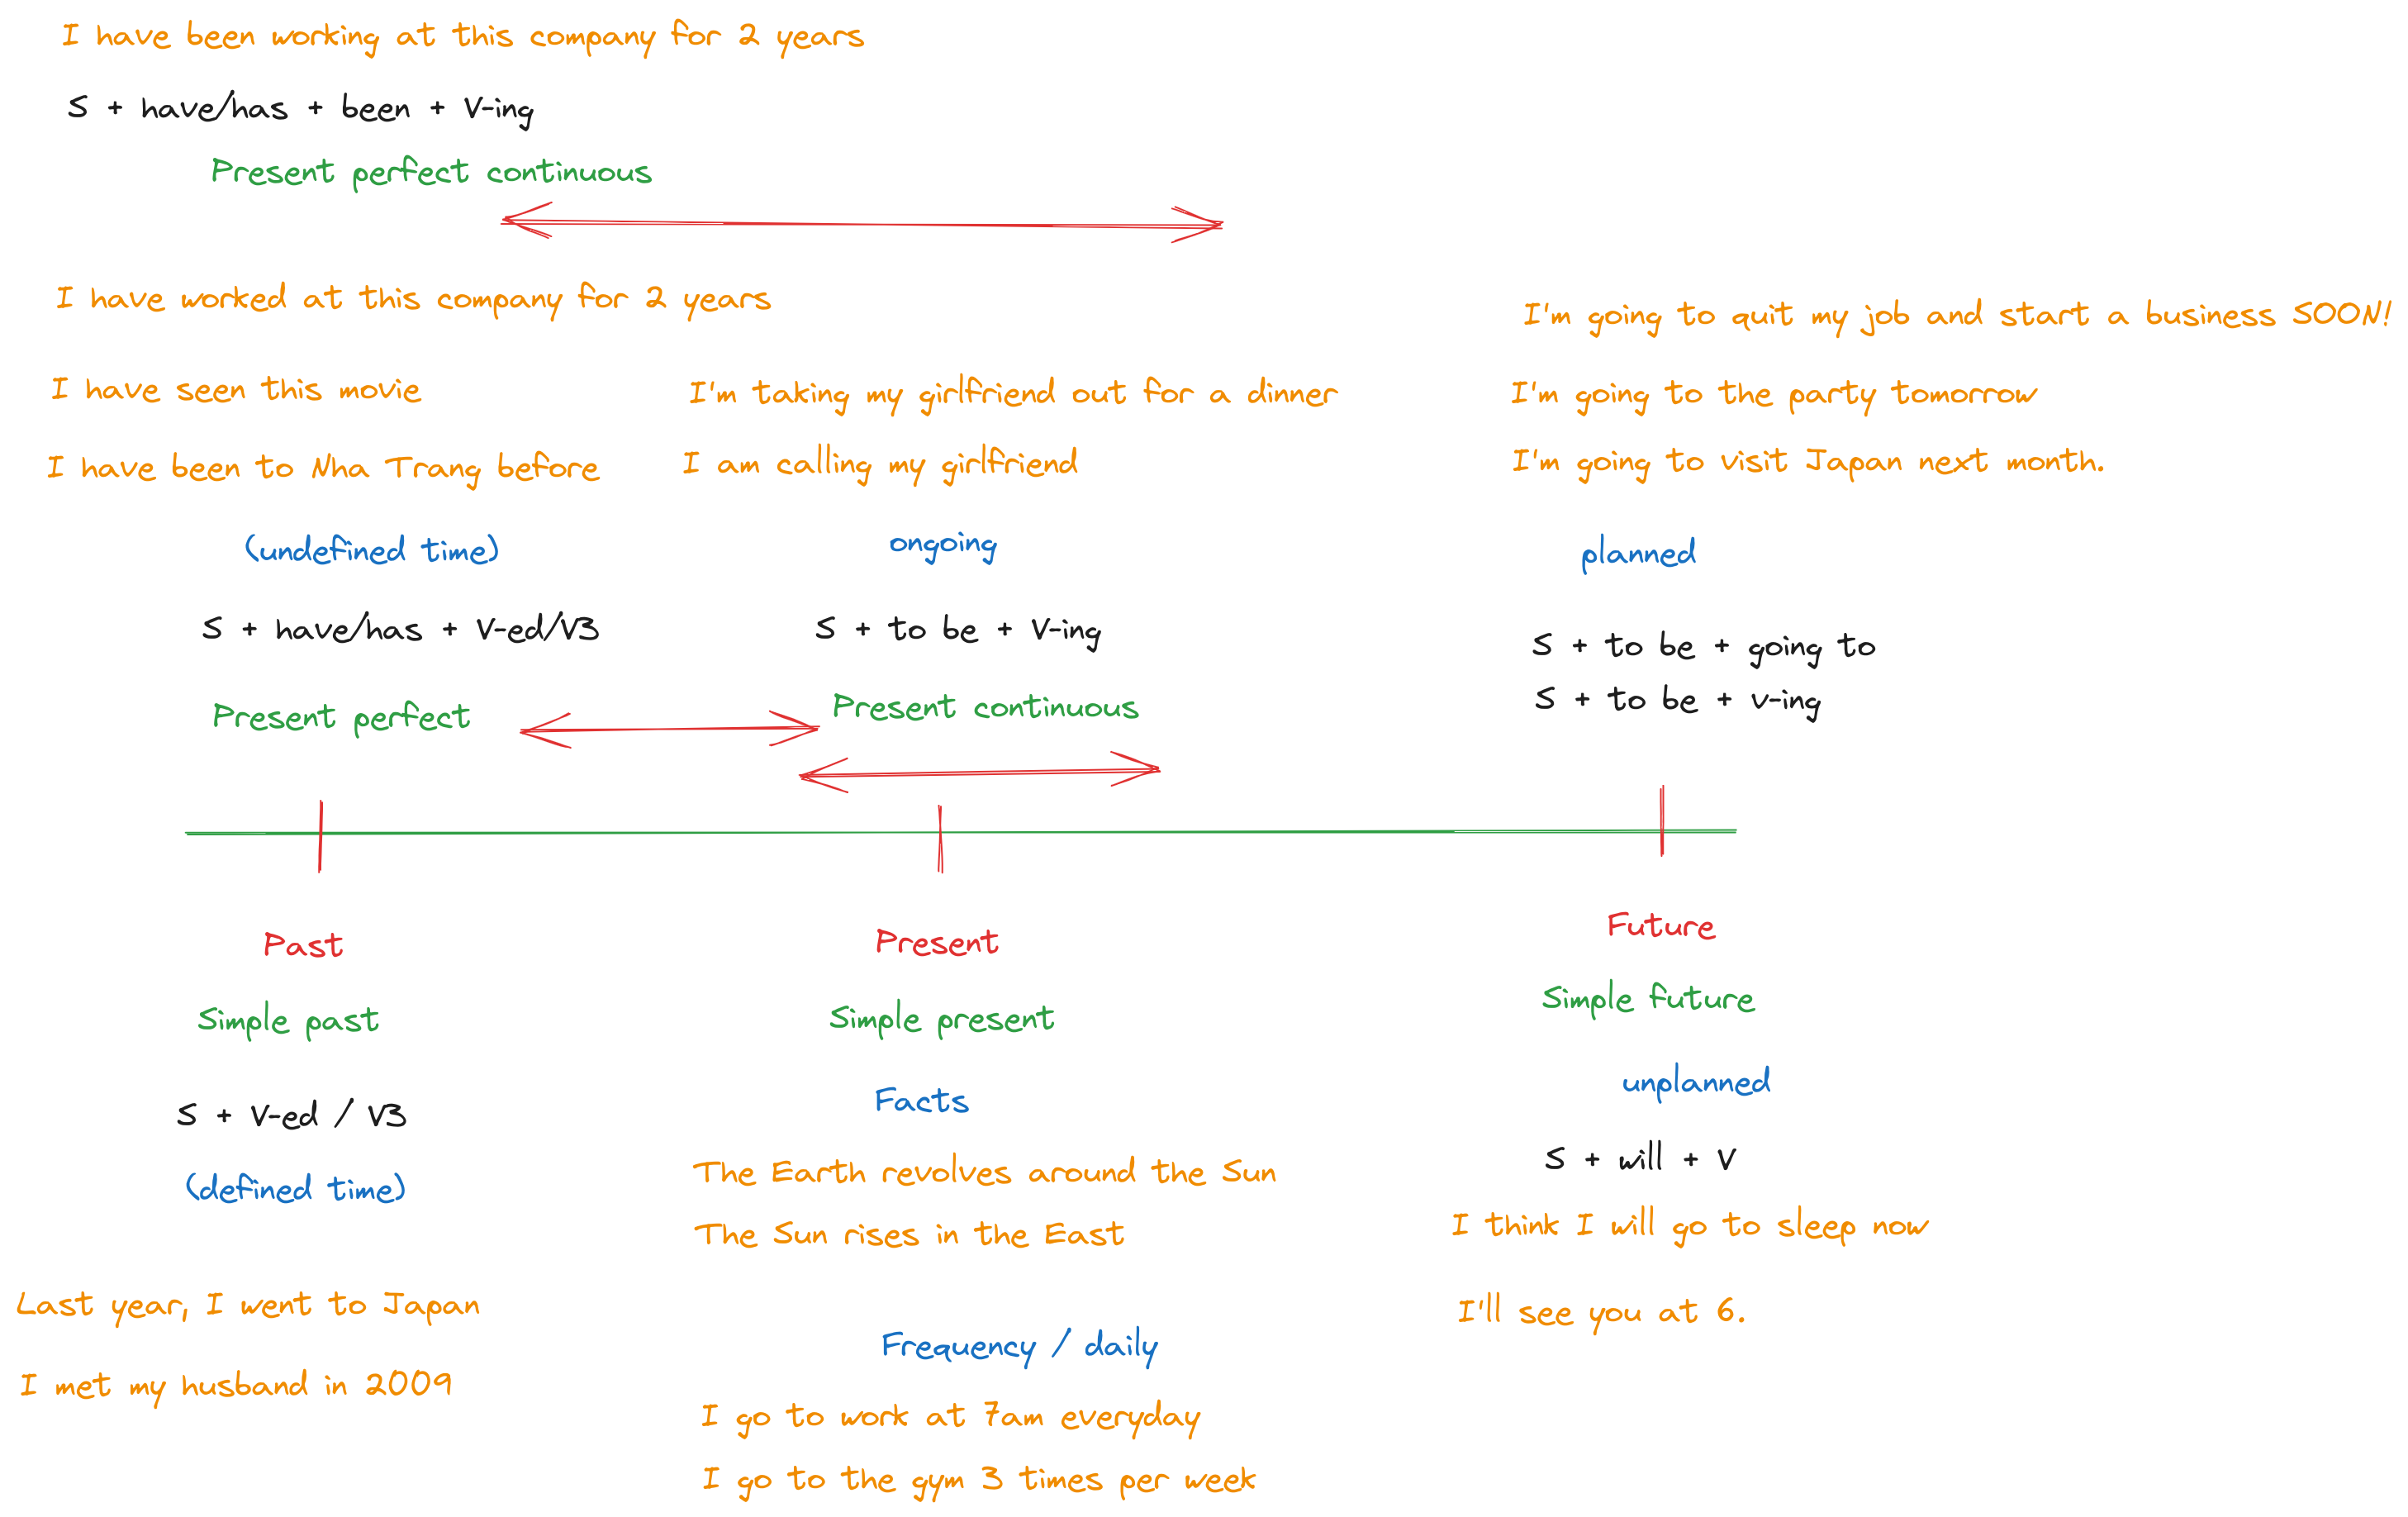 I have been working at this company for 2 years
S + have/has + been + V-ing
Present perfect continuous
I have worked at this company for 2 years
I have seen this movie
I have been to Nha Trang before
(undefined time)
S + have/has + V-ed/V3
Present perfect
I'm taking my girlfriend out for a dinner
I am calling my girlfriend
ongoing
S + to be + V-ing
Present continuous
I'm going to quit my job and start a business SOON!
I'm going to the party tomorrow
I'm going to visit Japan next month.
planned
S + to be + going to
S + to be + v-ing
Past
Simple past
S + V-ed / V3
(defined time)
Last year, I went to Japan
I met my husband in 2009
Present
Simple present
Facts
The Earth revolves around the Sun
The Sun rises in the East
Frequency / daily
I go to work at 7am everyday
I go to the gym 3 times per week
Future
Simple future
unplanned
S + will + V
I think I will go to sleep now
I'll see you at 6.